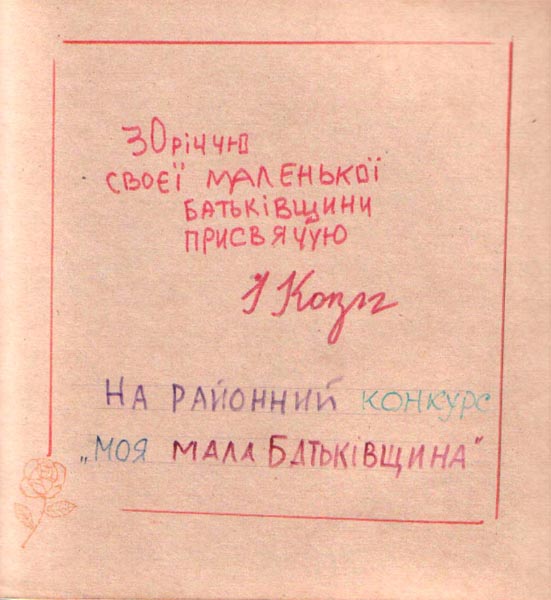 30річчю
своєї маленької
Батьківщини
присвячую
На районний конкурс
„моя мала Батьківщина"